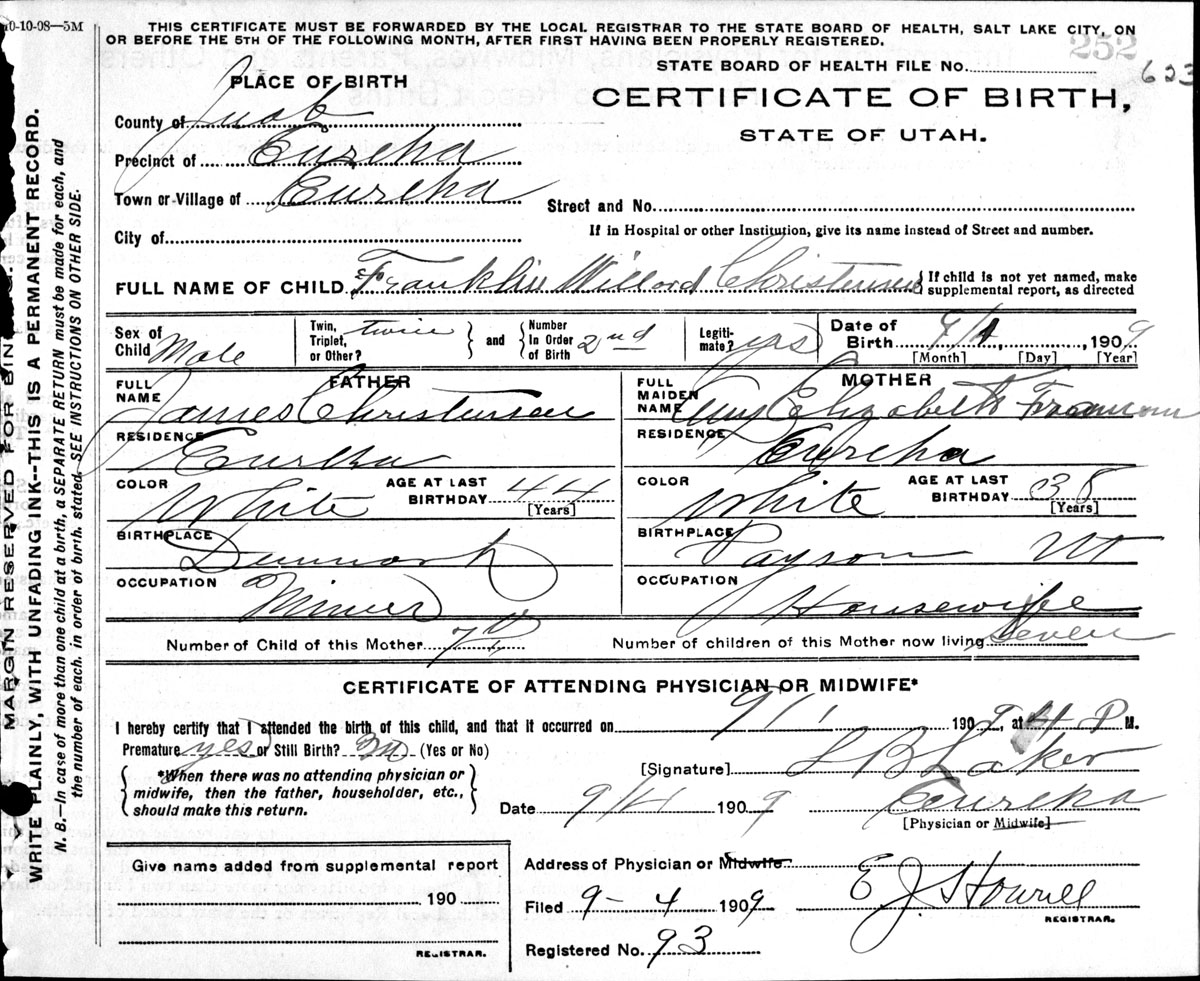 10-10-08—5M
THIS CERTIFICATE MUST BE FORWARDED BY THE LOCAL REGISTRAR TO THE STATE BOARD OF HEALTH, SALT LAKE CITY, ON
OR BEFORE THE 5TH OF THE FOLLOWING MONTH, AFTER FIRST HAVING BEEN PROPERLY REGISTERED.
252
STATE BOARD OF HEALTH FILE No. 623
PLACE OF BIRTH
CERTIFICATE OF BIRTH,
STATE OF UTAH.
County of Juab
Precinct of Eureka
Town or Village of Eureka
Street and No.
City of
If in Hospital or other Institution, give its name instead of Street and number.
FULL NAME OF CHILD Franklin Willard Christensen } If child is not yet named, make
supplemental report, as directed
Sex of Child Male
Twin, Triplet, or Other? twin } and { Number In Order of Birth 2nd
Legitimate? yes
Date of Birth 9/1, 1909
[Month] [Day] [Year]
FATHER
FULL NAME James Christensen
RESIDENCE Eureka
COLOR White AGE AT LAST BIRTHDAY 44 [Years]
BIRTHPLACE Denmark
OCCUPATION Miner
MOTHER
FULL MAIDEN NAME Amy Elizabeth
RESIDENCE Eureka
COLOR White AGE AT LAST BIRTHDAY 38 [Years]
BIRTHPLACE Payson Ut
OCCUPATION Housewife
Number of Child of this Mother 7th Number of children of this Mother now living Seven
CERTIFICATE OF ATTENDING PHYSICIAN OR MIDWIFE*
I hereby certify that I attended the birth of this child, and that it occurred on 9/1 1909, at 4 P M.
Premature yes or Still Birth? no (Yes or No)
*When there was no attending physician or
midwife, then the father, householder, etc.,
should make this return.
[Signature] L B Laker
Date 9/4 1909 Eureka
[Physician or Midwife]
Give name added from supplemental report
190
REGISTRAR.
Address of Physician or Midwife
Filed 9-4 1909 E J Howell
REGISTRAR.
Registered No. 93
MARGIN RESERVED FOR BINDING.
WRITE PLAINLY, WITH UNFADING INK--THIS IS A PERMANENT RECORD.
N. B.—In case of more than one child at a birth, a SEPARATE RETURN must be made for each, and
the number of each, in order of birth, stated. SEE INSTRUCTIONS ON OTHER SIDE.